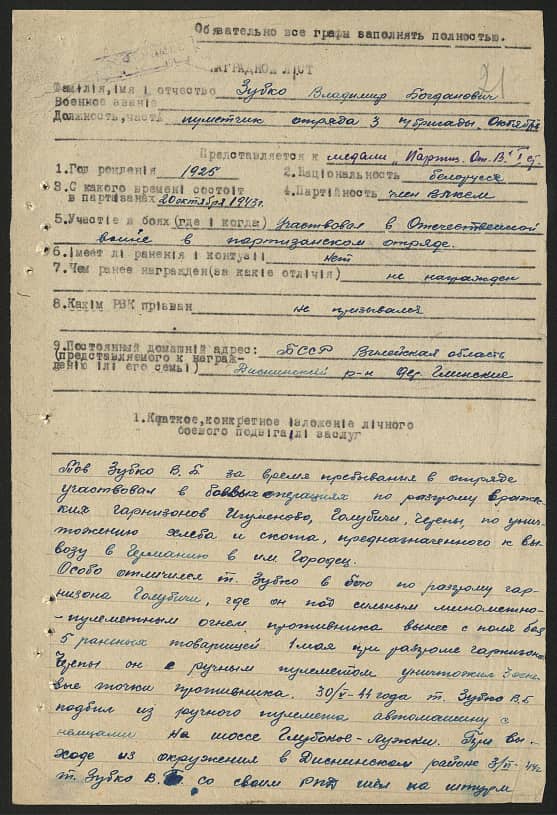 Обязательно все графы заполнять полностью.
21
НАГРАДНОЙ ЛІСТ
Фамілія, імя і отчество Зубко Владимир Богданович
Военное званіе
Должность, часть пулеметчик отряда 3 п/бригады "Октябрь
Представляется к медали "Партиз. От. В." I ст.
1. Год рождения 1925 2. Національность белорусс
3. С какого времені состоіт 4. Партійность член ВЛКСМ
в партизанах 20 октября 1943 г.
5. Участіе в боях (где і когда) участвовал в Отечественной
войне в партизанском отряде.
6. Імеет лі раненія і контузіі нет
7. Чем ранее награжден (за какіе отлічія) не награжден
8. Какім РВК прізван не призывался
9. Постоянный домашній адрес: БССР Вилейская область
(представляемого к награж-
денію ілі его семьі) Диснинский р-н дер. Глинские
1. Краткое, конкретное ізложеніе лічного
боевого подвіга ілі заслуг
Тов Зубко В. Б. за время пребывания в отряде
участвовал в боевых операциях по разгрому вражес-
ких гарнизонов Игуменово, Голубичи, Черепы, по унич-
тожению хлеба и скота, предназначенного к вы-
возу в Германию в им. Городец.
Особо отличился т. Зубко в бою по разгрому гар-
низона Голубичи, где он под сильным минометно-
-пулеметным огнем противника вынес с поля боя
5 раненых товарищей. 1 мая при разгроме гарнизона
Черепы он с ручным пулеметом уничтожил 3 огне-
вые точки противника. 30/V-44 года т. Зубко В.Б
подбил из ручного пулемета автомашину с
немцами на шоссе Глубокое-Лужки. При вы-
ходе из окружения в Диснинском районе 3/VI-44г.
т. Зубко В. Б. со своим РПД шел на штурм